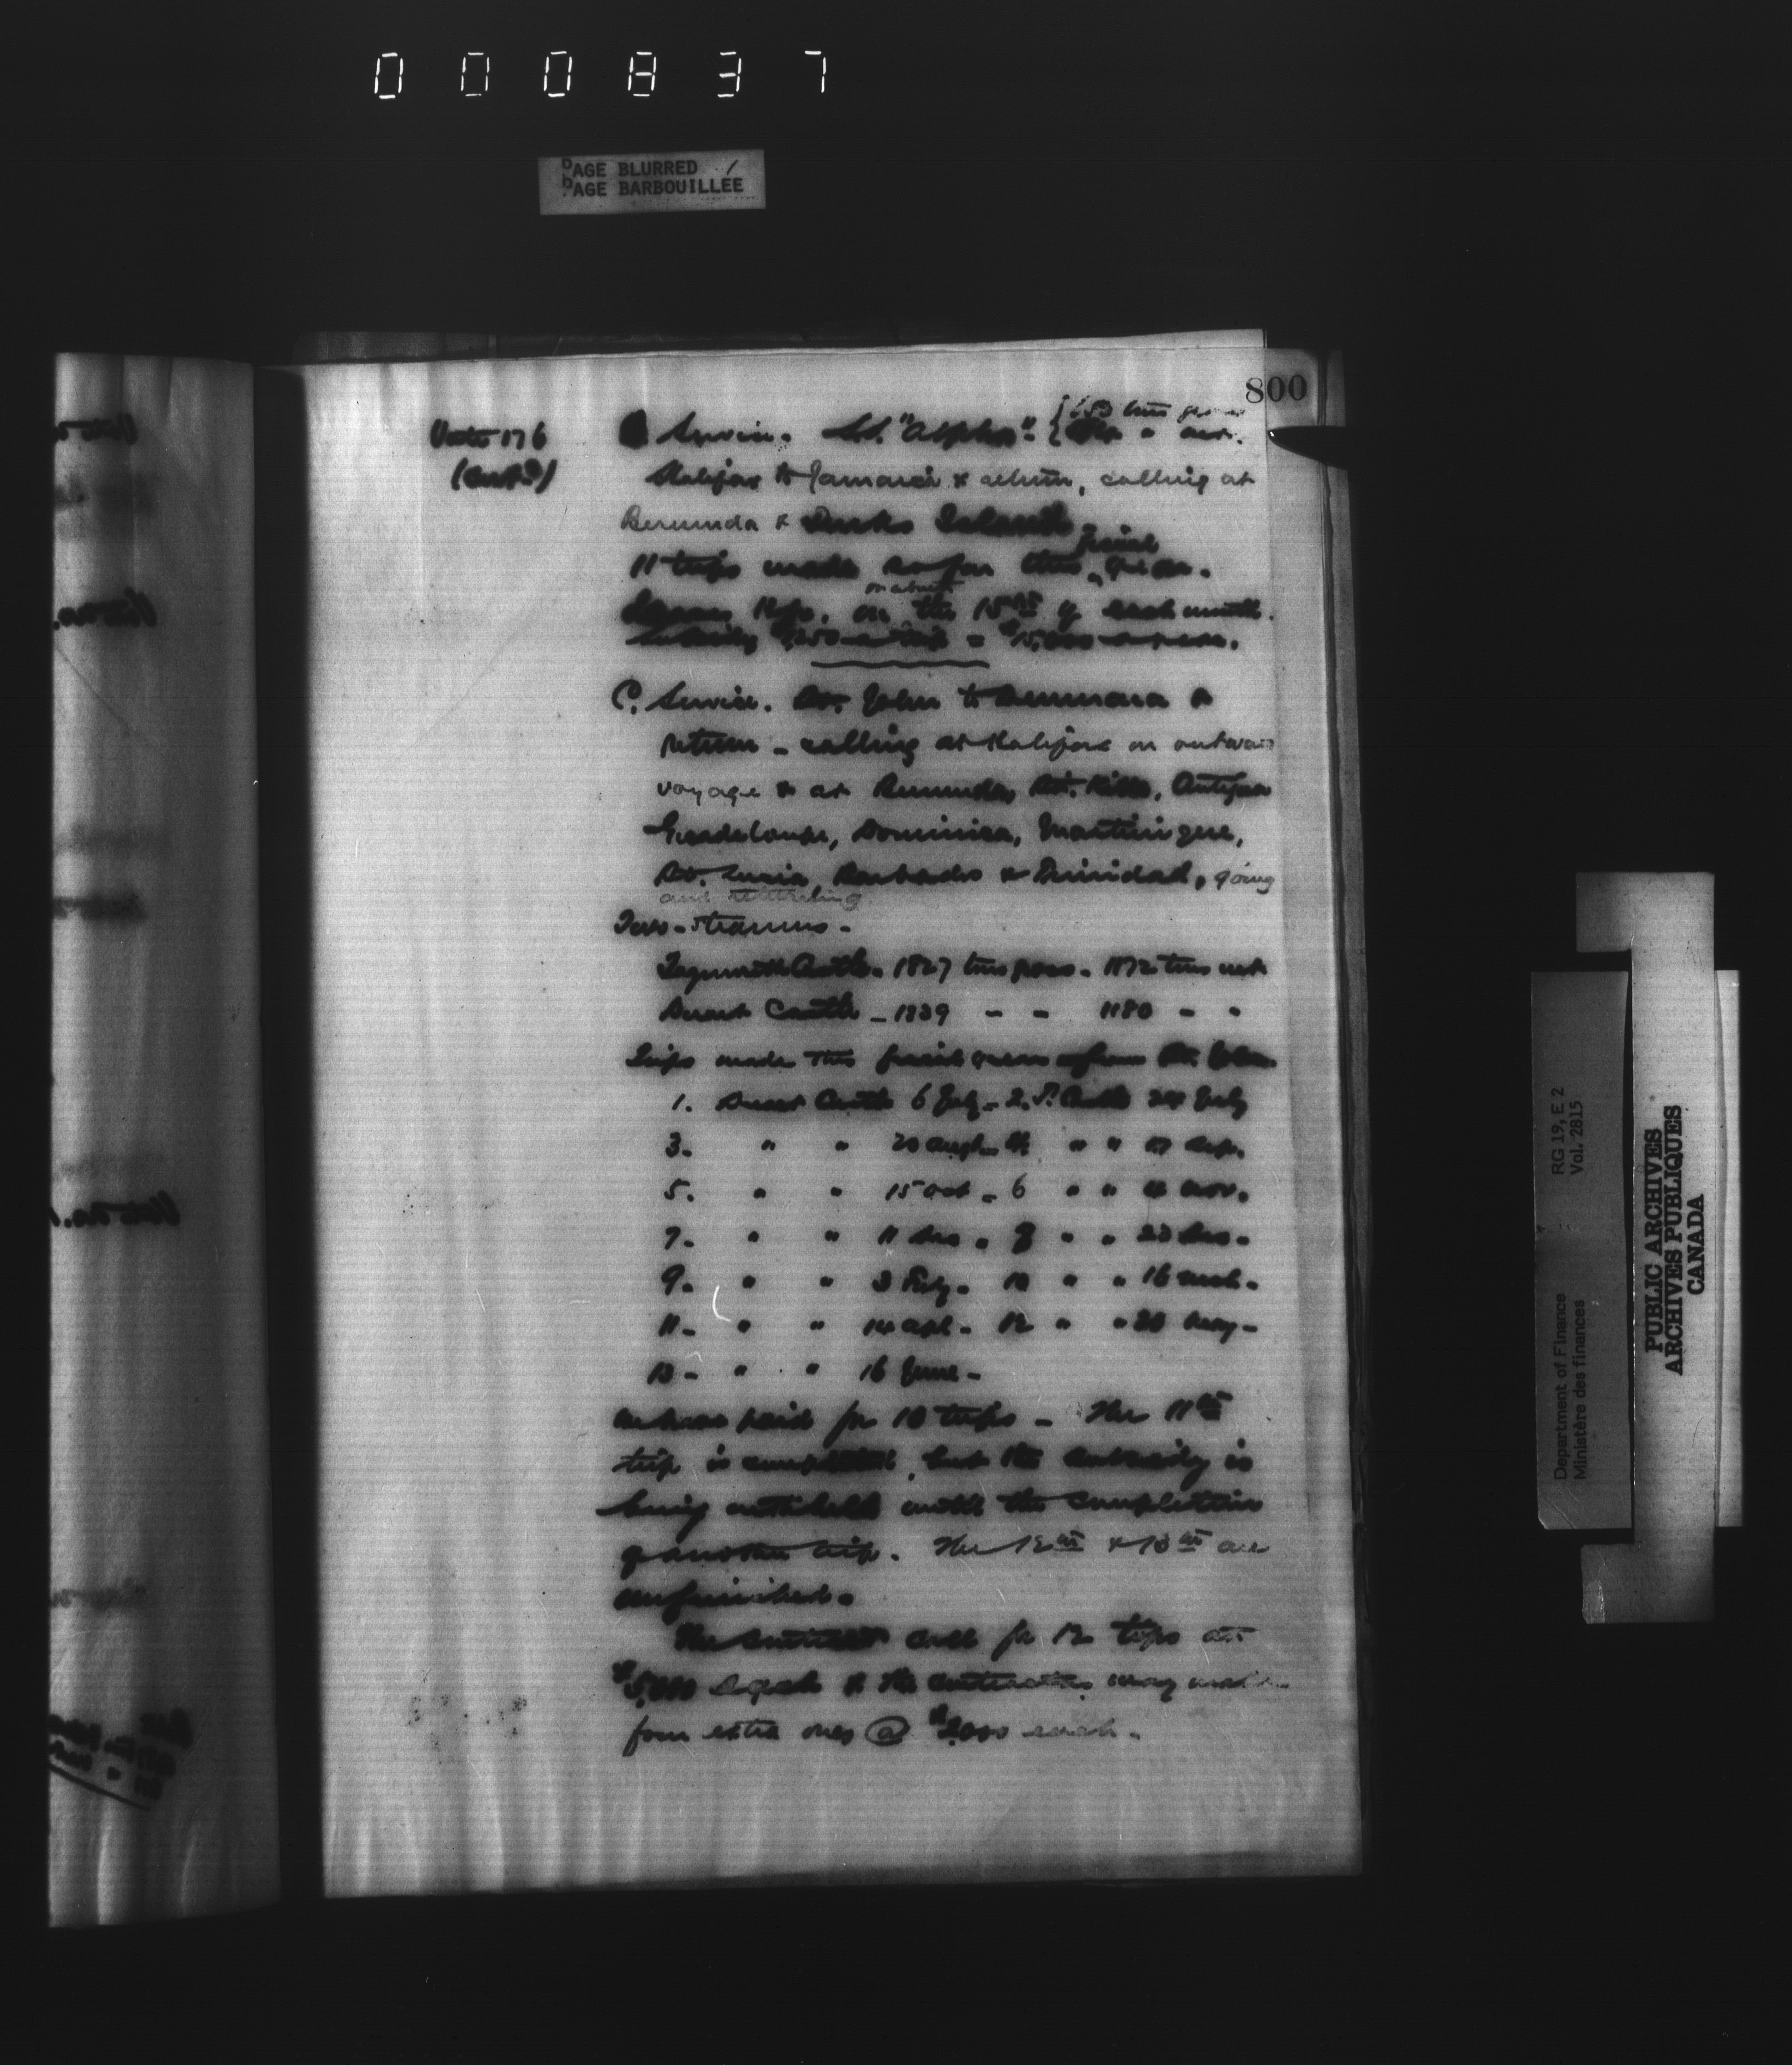 000837
PAGE BLURRED
PAGE BARBOUILLÉE
800
Vote 176
(Cont'd)
Service. S.S. "Alpha" - {653 tons gross
" nett.
Halifax to Jamaica & return, calling at
Bermuda & Turks Island
11 trips made so far this fiscal year.
Leaves Hfx. on or about the 15th of each month.
Subsidy $1250 a trip = $15,000 a year.
C. Service. St. John to Demerara &
return - calling at Halifax on outward
voyage & at Bermuda, St. Kitts, Antigua
Guadeloupe, Dominica, Martinique,
St. Lucia, Barbados & Trinidad, going
and returning
Two steamers -
Taymouth Castle - 1827 tons gross - 1172 tons nett
Duart Castle - 1839 - - 1180 - -
Trips made this fiscal year from St. John
1. Duart Castle 6 July - 2. T. Castle 24 July
3. " " 20 Augt - 4 " " 17 Sep.
5. " " 15 Oct - 6 " " Nov.
7. " " 11 Dec - 8 " " 23 Dec -
9. " " 3 Feby - 10 " " 16 Mch -
11 - " " 14 Apl - 12 " " 20 May -
13 - " " 16 June -
We have paid for 10 trips - The 11th
trip is completed, but the subsidy is
being withheld until the completion
of another trip. The 12th & 13th are
unfinished.
The contract calls for 12 trips at
$5,000 each & the contractors may make
four extra ones @ $2000 each -
RG 19, E 2
Vol. 2815
Department of Finance
Ministère des finances
PUBLIC ARCHIVES
ARCHIVES PUBLIQUES
CANADA